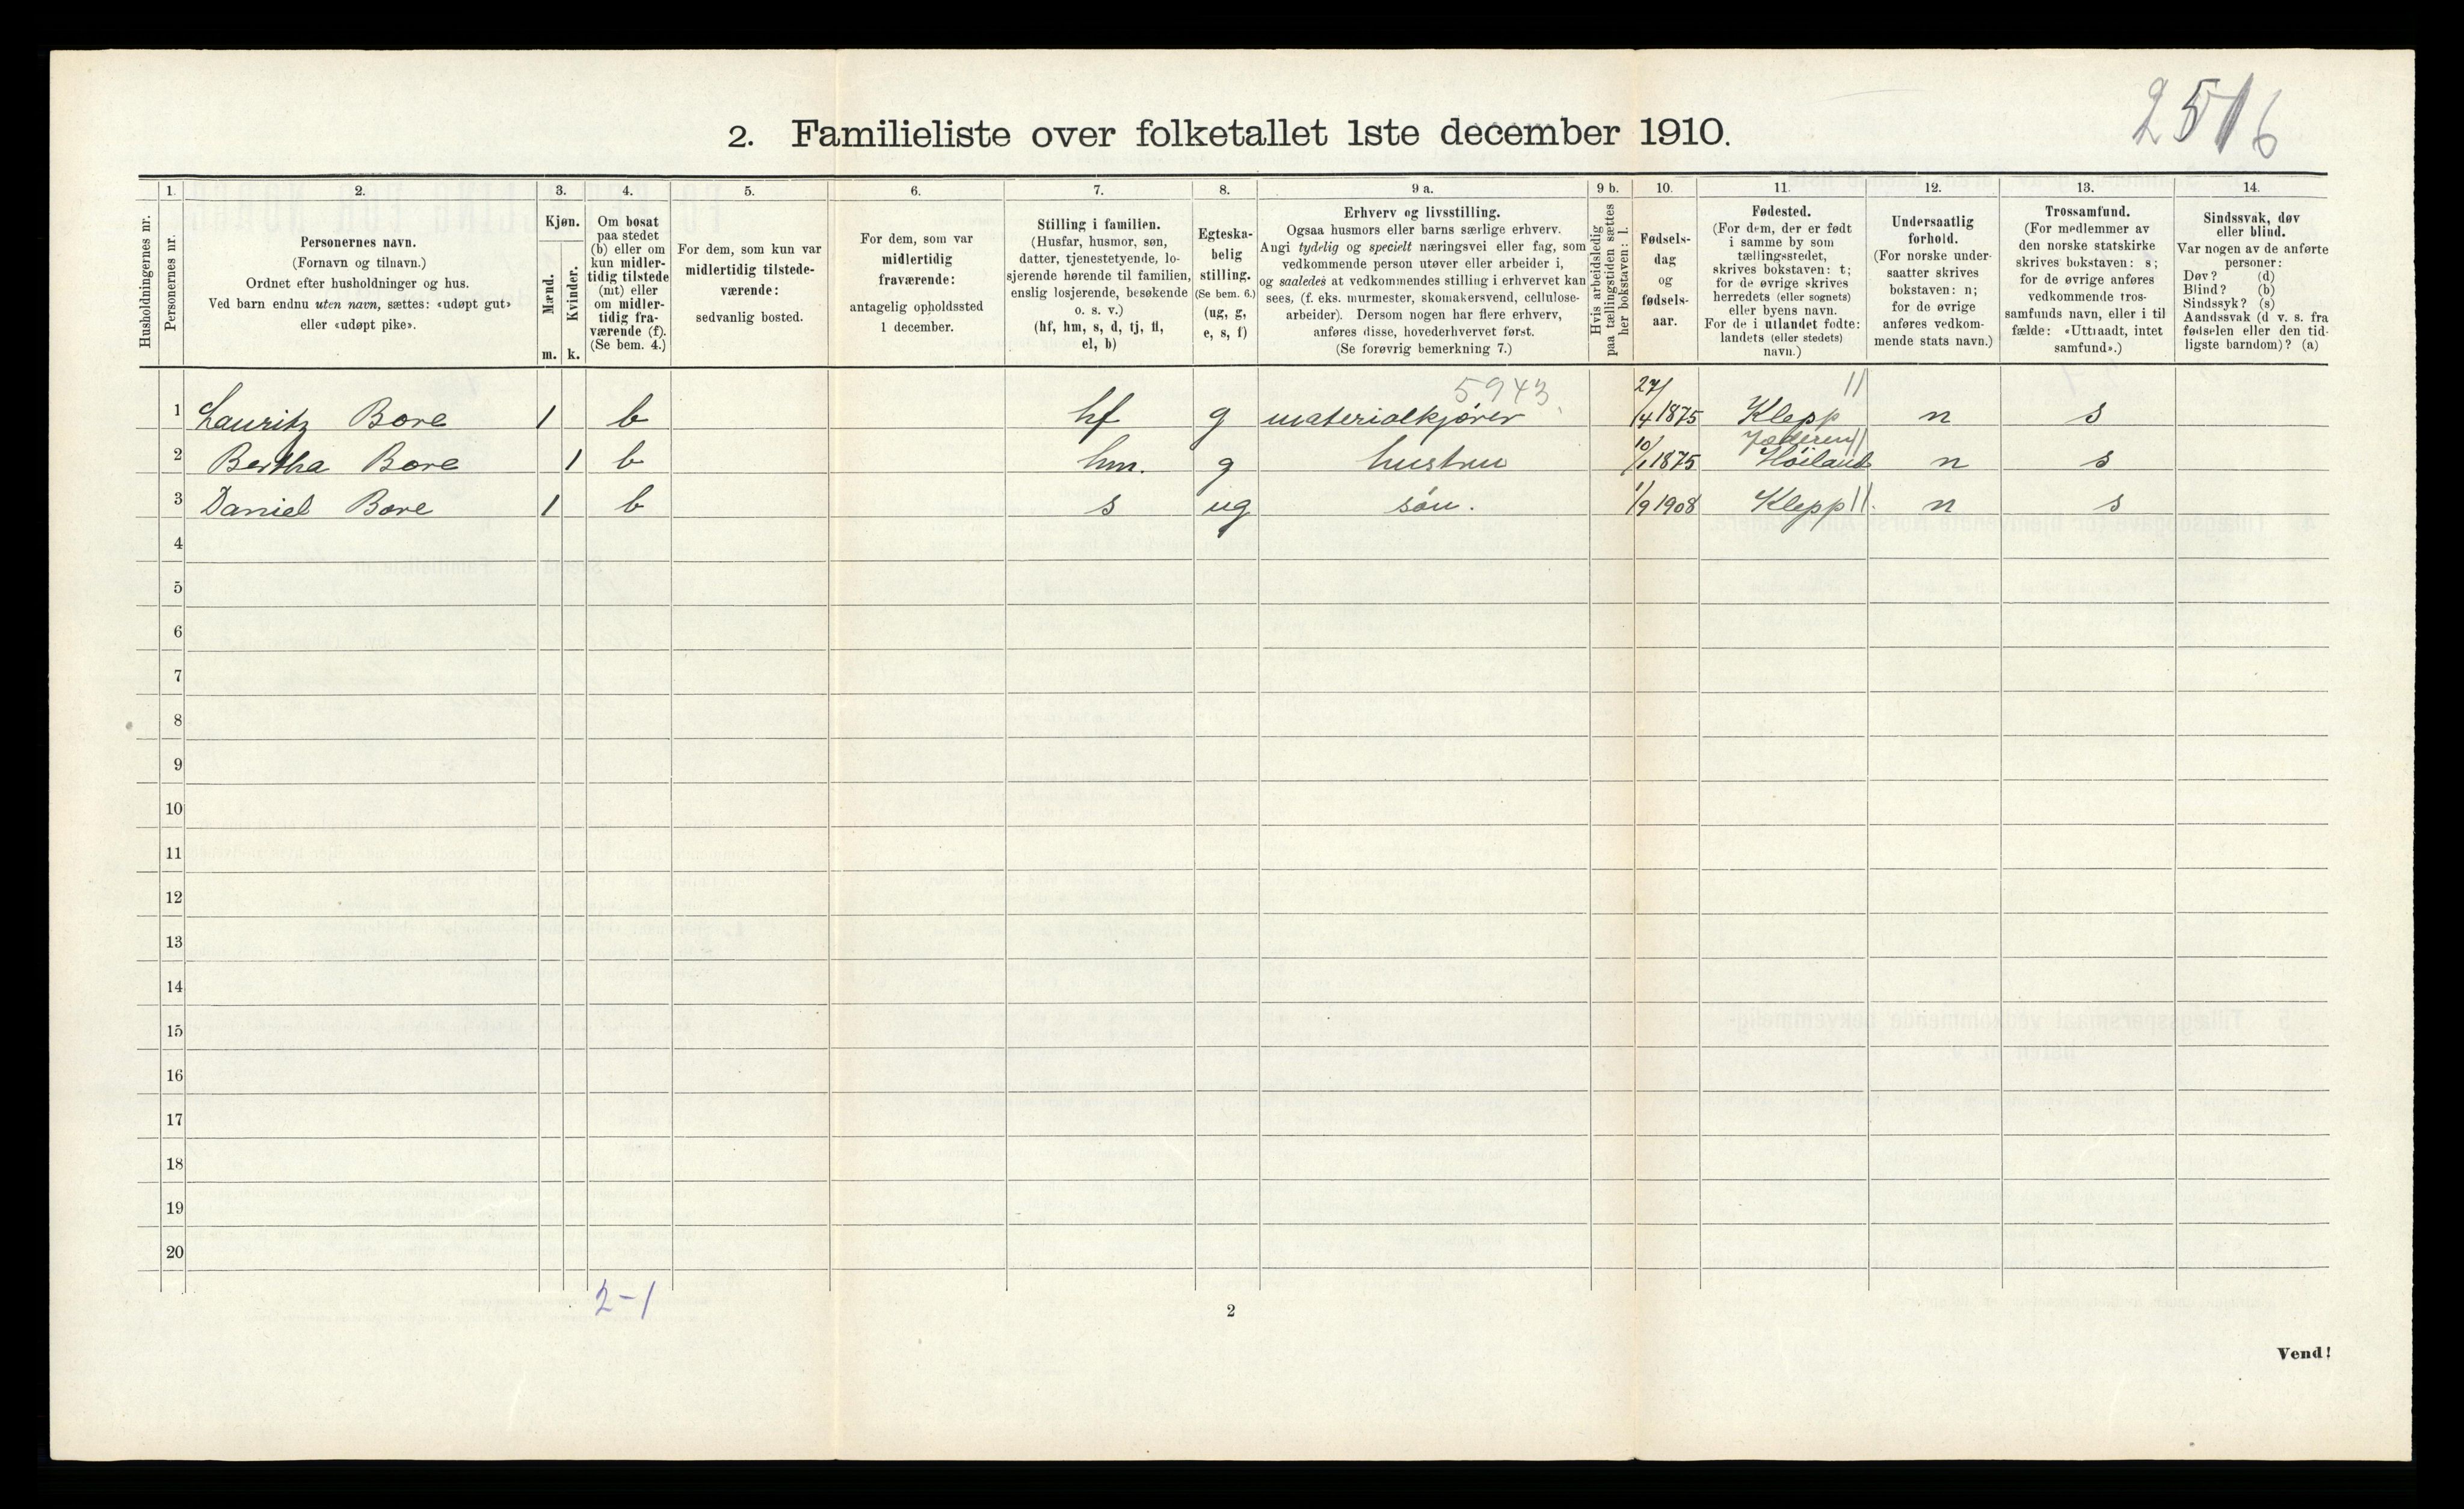 2516
2. Familieliste over folketallet 1ste december 1910.
Husholdningernes nr.
1.
Personernes nr.
2.
Personernes navn.
(Fornavn og tilnavn.)
Ordnet efter husholdninger og hus.
Ved barn endnu uten navn, sættes: «udøpt gut»
eller «udøpt pike».
3.
Kjøn.
Mænd.
Kvinder.
m. k.
4.
Om bosat
paa stedet
(b) eller om
kun midler-
tidig tilstede
(mt) eller
om midler-
tidig fra-
værende (f).
(Se bem. 4.)
5.
For dem, som kun var
midlertidig tilstede-
værende:
sedvanlig bosted.
6.
For dem, som var
midlertidig
fraværende:
antagelig opholdssted
1 december.
7.
Stilling i familien.
(Husfar, husmor, søn,
datter, tjenestetyende, lo-
sjerende hørende til familien,
enslig losjerende, besøkende
o. s. v.)
(hf, hm, s, d, tj, fl,
el, b)
8.
Egteska-
belig
stilling.
(Se bem. 6.)
(ug, g,
e, s, f)
9 a.
Erhverv og livsstilling.
Ogsaa husmors eller barns særlige erhverv.
Angi tydelig og specielt næringsvei eller fag, som
vedkommende person utøver eller arbeider i,
og saaledes at vedkommendes stilling i erhvervet kan
sees, (f. eks. murmester, skomakersvend, cellulose-
arbeider). Dersom nogen har flere erhverv,
anføres disse, hovederhvervet først.
(Se forøvrig bemerkning 7.)
9 b.
Hvis arbeidsledig
paa tællingstiden sættes
her bokstaven: l.
10.
Fødsels-
dag
og
fødsels-
aar.
11.
Fødested.
(For dem, der er født
i samme by som
tællingsstedet,
skrives bokstaven: t;
for de øvrige skrives
herredets (eller sognets)
eller byens navn.
For de i utlandet fødte:
landets (eller stedets)
navn.)
12.
Undersaatlig
forhold.
(For norske under-
saatter skrives
bokstaven: n;
for de øvrige
anføres vedkom-
mende stats navn.)
13.
Trossamfund.
(For medlemmer av
den norske statskirke
skrives bokstaven: s;
for de øvrige anføres
vedkommende tros-
samfunds navn, eller i til-
fælde: «Uttraadt, intet
samfund».)
14.
Sindssvak, døv
eller blind.
Var nogen av de anførte
personer:
Døv? (d)
Blind? (b)
Sindssyk? (s)
Aandssvak (d v. s. fra
fødselen eller den tid-
ligste barndom)? (a)
5943. 11
1 Lauritz Bore 1 b hf g materialkjører 27/4 1875 Klepp n s
Jæderen 11
2 Bertha Bore 1 b hm. g hustru 10/1 1875 Høiland n s
3 Daniel Bore 1 b s ug søn. 1/9 1908 Klepp 11. n s
4
5
6
7
8
9
10
11
12
13
14
15
16
17
18
19
20
2-1
2
Vend!